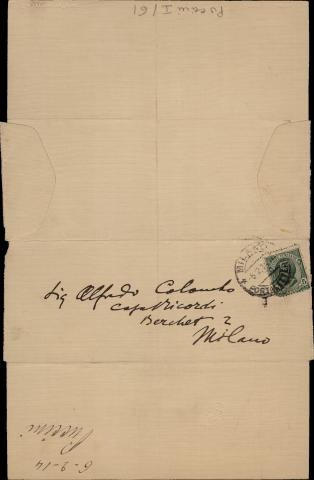 Puccini I/61
MILANO
Sig Alfredo Colombo
Casa Ricordi
Berchet 2
Milano
Puccini
6-2-14